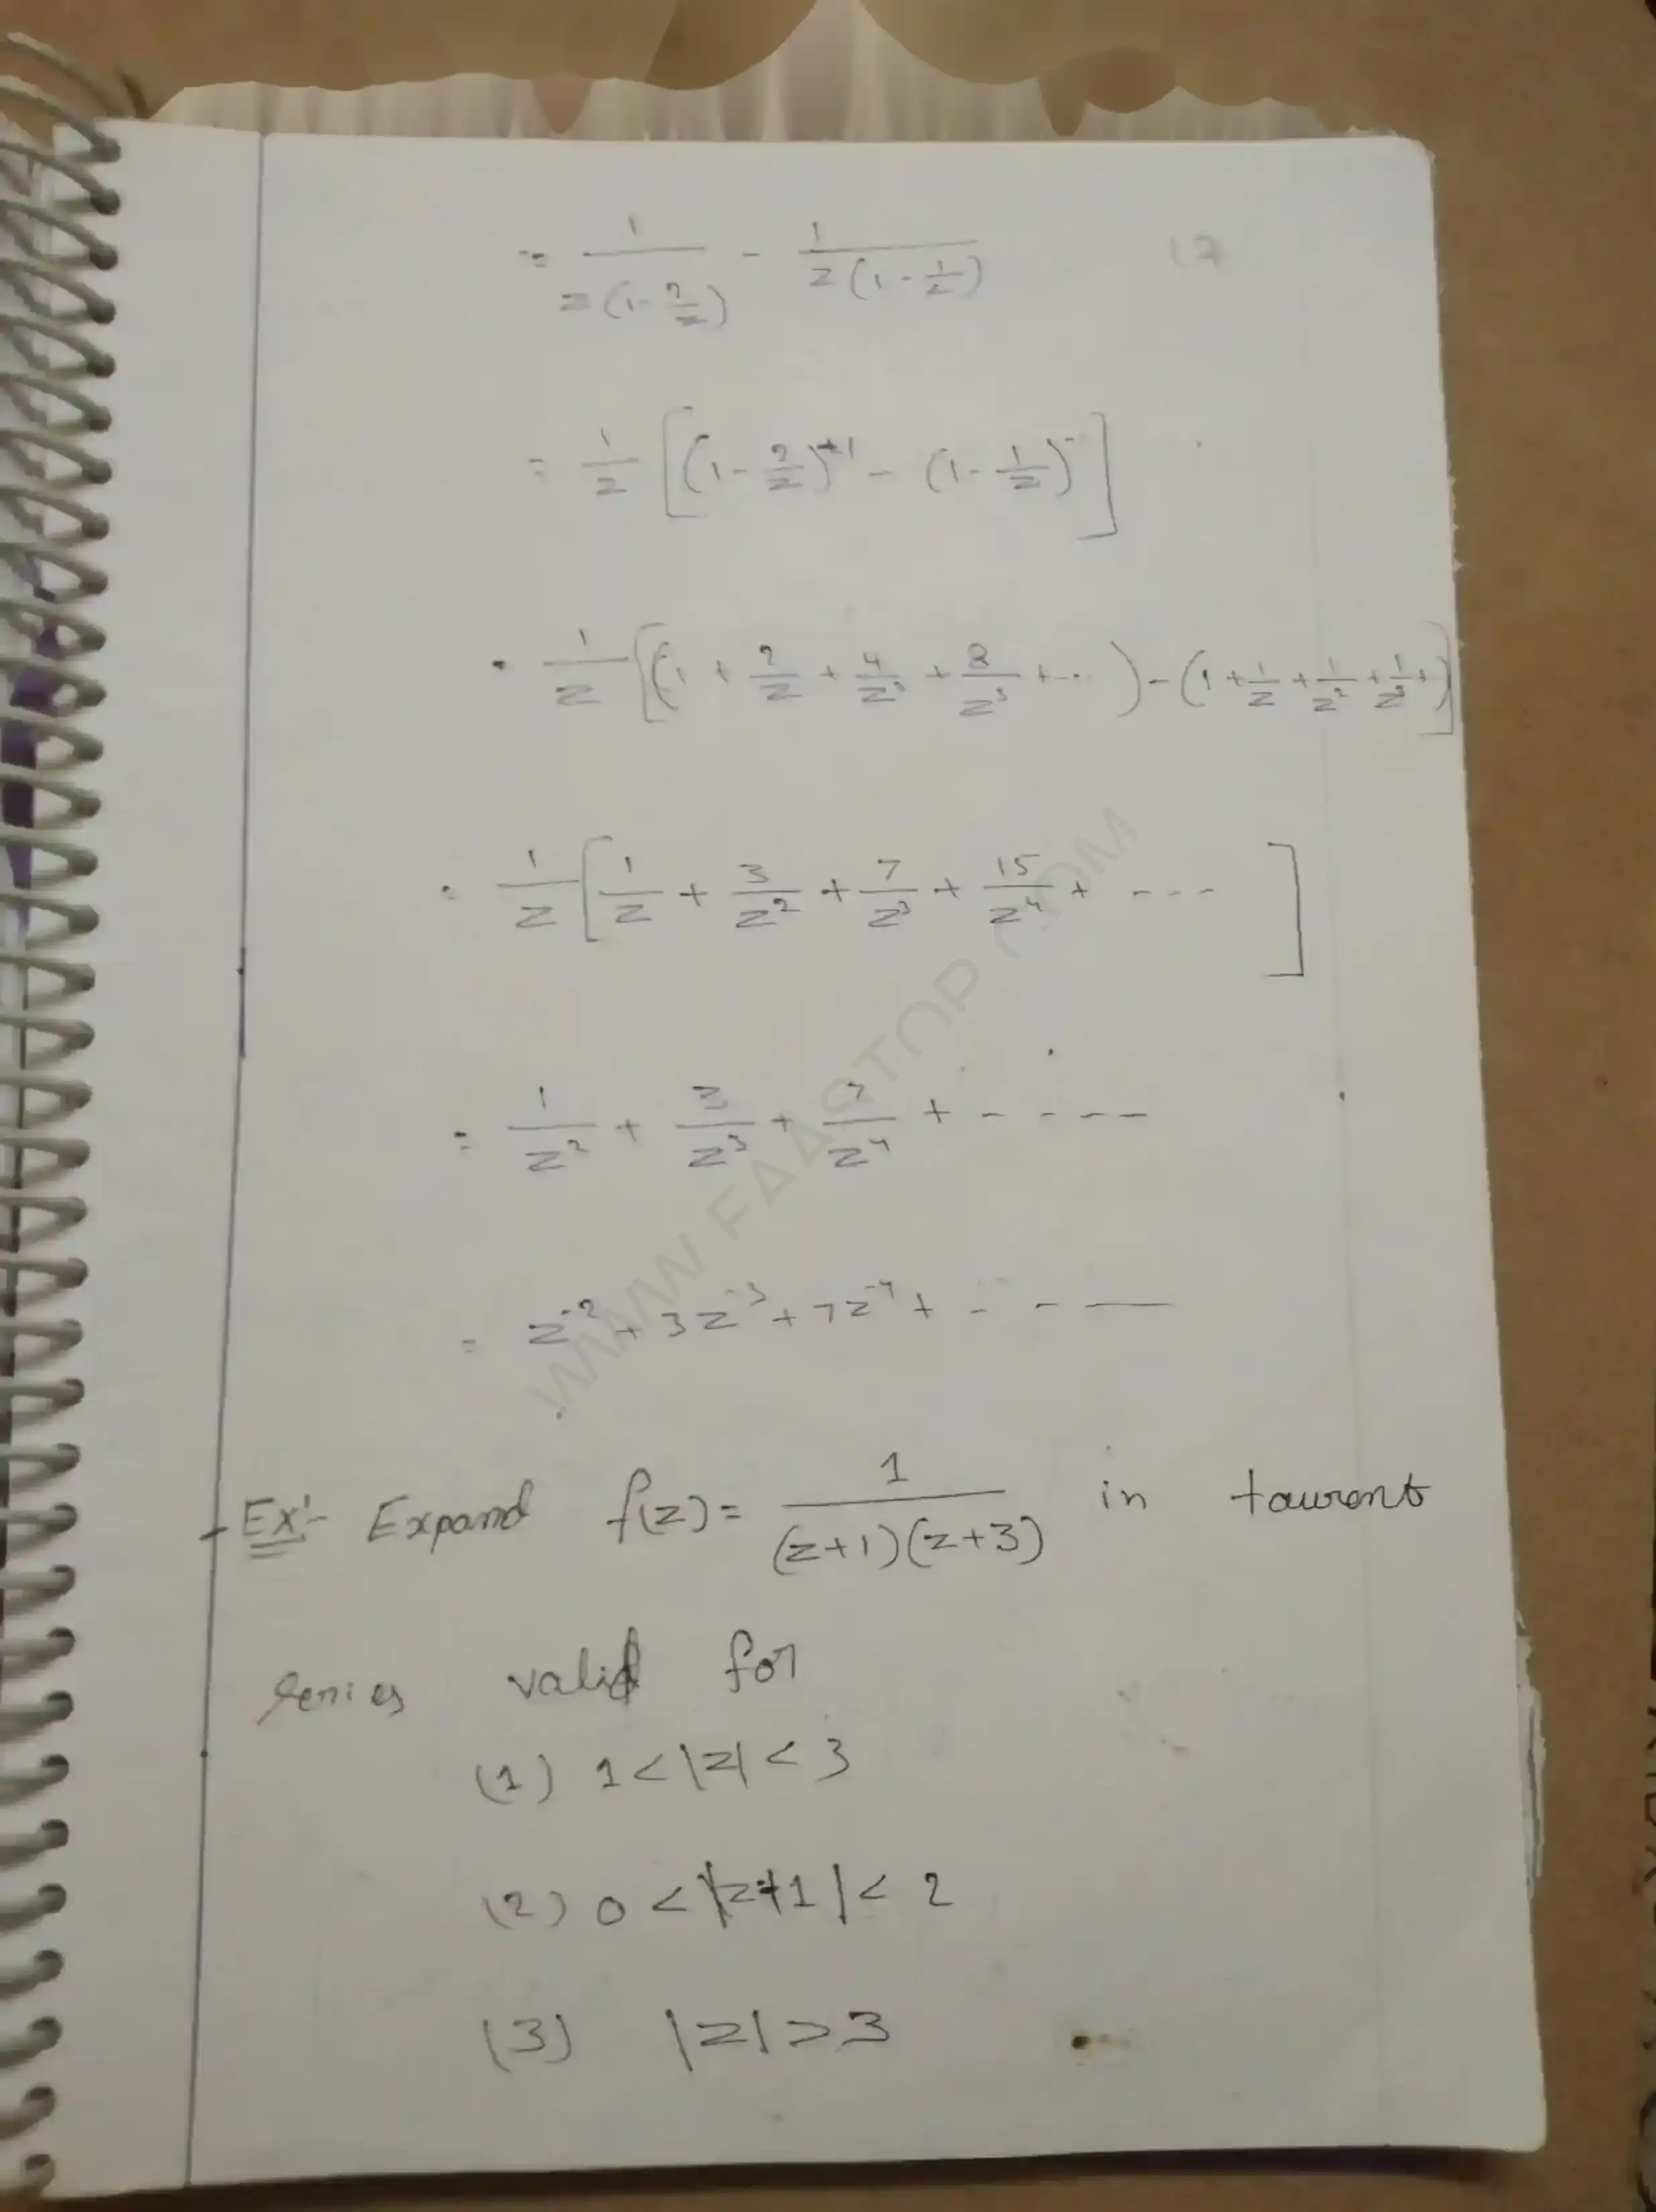 17
= 1/(z(1-2/z)) - 1/(z(1-1/z))
= 1/z [(1-2/z)^+1 - (1-1/z)^-]
= 1/z [(1 + 2/z + 4/z² + 8/z³ + ...) - (1 + 1/z + 1/z² + 1/z³ +)]
= 1/z [1/z + 3/z² + 7/z³ + 15/z⁴ + ---]
= 1/z² + 3/z³ + 7/z⁴ + - - - -
= z^-2 + 3z^-3 + 7z^-4 + - - —
Ex:- Expand f(z) = 1/((z+1)(z+3)) in taurent
series valid for
(1) 1 < |z| < 3
(2) 0 < |z+1| < 2
(3) |z| > 3